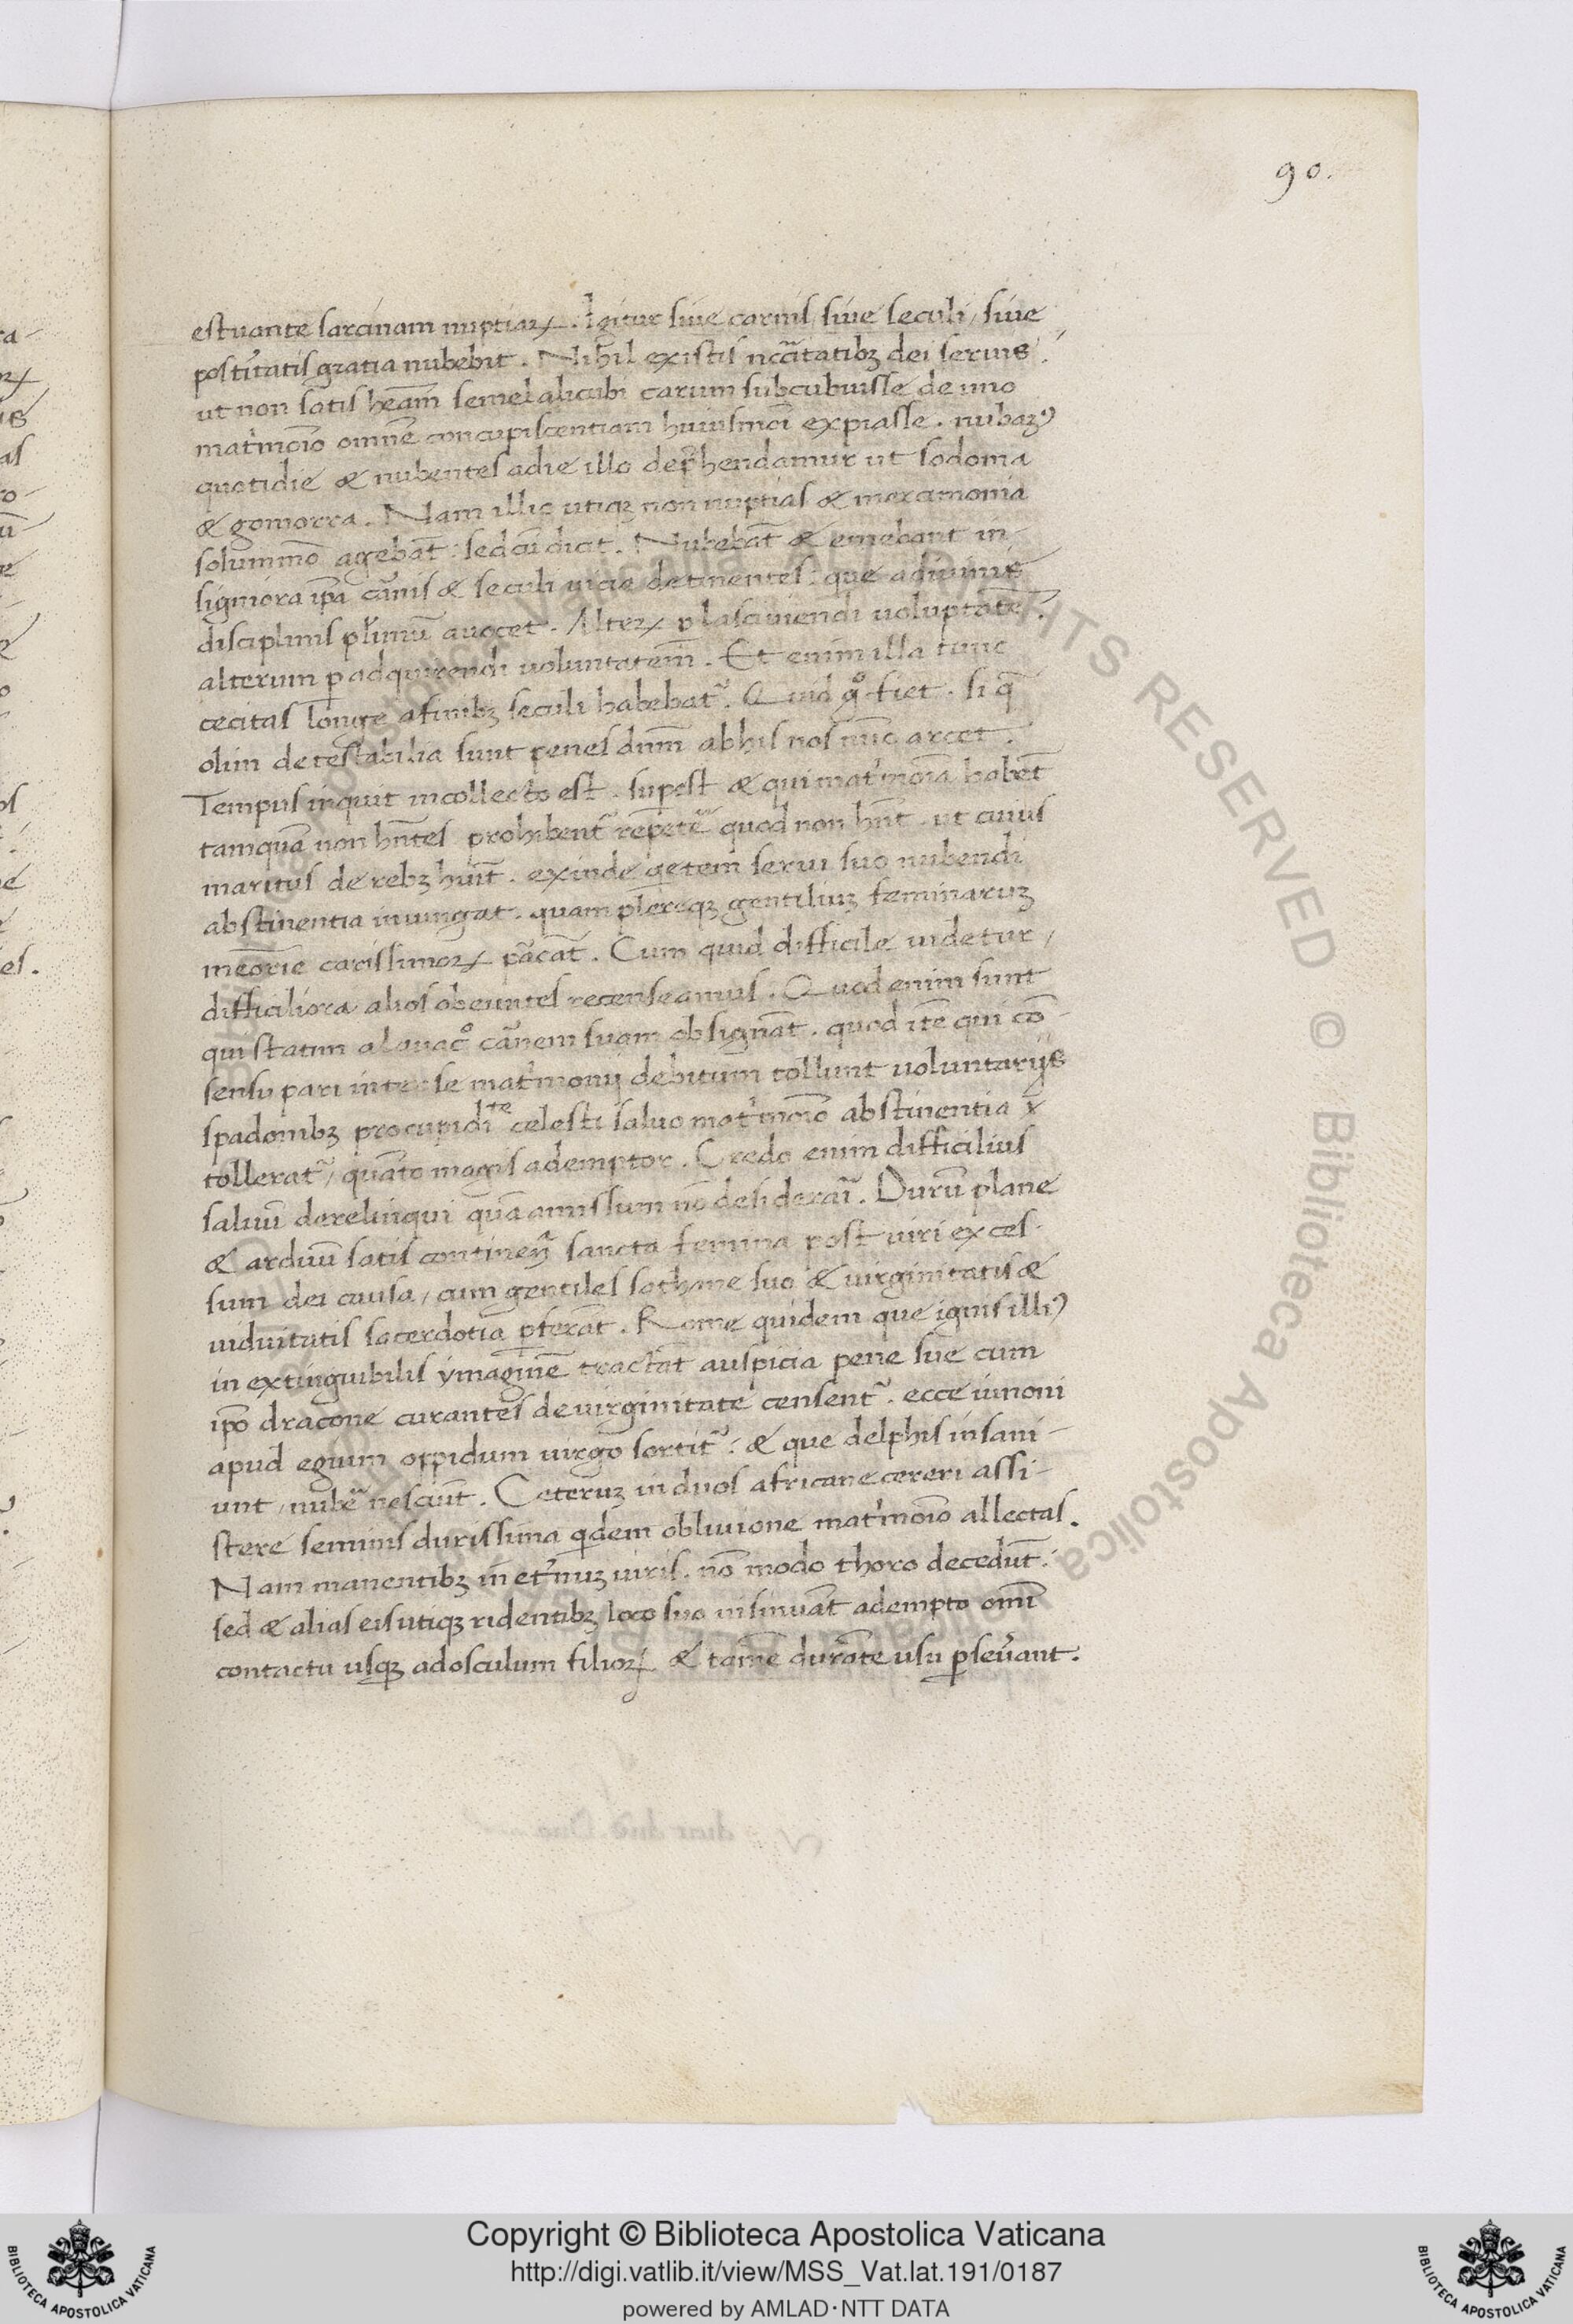 90.
estuante sarcinam nuptiaꝝ. Igitur siue carnis, siue seculi, siue
post̾itatis gratia nubebit. Nihil existis nc̃citatibꝫ dei seruis.
ut non satis hẽam semel alicubi carum subcubuisse de uno
mat̾moĩo omnẽ concupiscentiam huiusmõi expiasse. nubaꝫꝰ
quotidie & nubentes adie illo dep̃hendamur ut sodoma
& gomorra. Nam illic utiqꝫ non nuptias & mercimonia
solummõ agebãt: sed cũ dicit. Nubebãt & emebant in-
signiora ip̃a cãnis & seculi uicia detinentes: que adiuinis
disciplinis pl̾imũ auocet. Alteꝝ ꝑ lasciuiendi uoluptatẽ:
alterum ꝑ adquirendi voluntatem̃. Et enim illa tunc
cecitas longe afinibꝫ seculi habebat̃. Quid g̊ fiet. si q̃
olim detestabilia sunt penes dnm̃ abhis nos nũc arcet.
Tempus inquit incollecto est. suꝑest & qui mat̾moĩa habẽt
tamquã non hñtes prohibent̃ repetẽ quod non hñt. ut cuius
maritus de rebꝫ huĩt. exinde q̃etem serui suo nubendi
abstinentia iniungat. quam plereqꝫ gentiliuꝫ feminaruꝫ
meõrie carissimoꝝ pãcãt. Cum quid difficile uidetur,
difficiliora alios obeuntes recenseamus. Quod enim sunt
qui statim alauac̊ cãnem suam obsignãt. quod itẽ qui cõ-
sensu pari inter se mat̾monij debitum tollunt uoluntarijs
spadonibꝫ pro cupidi^te celesti saluo mat̾moĩo abstinentia
tollerat̃, quãto magis ademptor. Credo enim difficilius
saluũ derelinqui quã amissum nõ desideraĩ. Durũ plane
& arduũ satis continen̄ sancta femina post uiri exces-
sum dei causa, cum gentiles sathane suo & uirginitatis &
uiduitatis sacerdotia ꝑferãt. Rome quidem que ignis illiꝰ
in extinguibilis ymaginẽ tractãt auspicia pene sue cum
ip̃o dracone curantes deuirginitate censent̃. ecce iunoni
apud egium oppidum uirgo sortit̃: & que delphis insani-
unt, nubẽ nesciũt. Ceteruꝫ induos africane cereri assi-
stere seminis durissima q̃dem obliuione mat̾moĩo allectas.
Nam manentibꝫ in et̾nuꝫ uiris. nõ modo thoro decedũt:
sed & alias eis utiqꝫ ridentibꝫ loco suo insinuãt adempto omĩ
contactu usqꝫ adosculum filioꝝ & tamẽ durãte usu ꝑseũant.
Copyright © Biblioteca Apostolica Vaticana
http://digi.vatlib.it/view/MSS_Vat.lat.191/0187
powered by AMLAD·NTT DATA
BIBLIOTECA APOSTOLICA VATICANA
BIBLIOTECA APOSTOLICA VATICANA